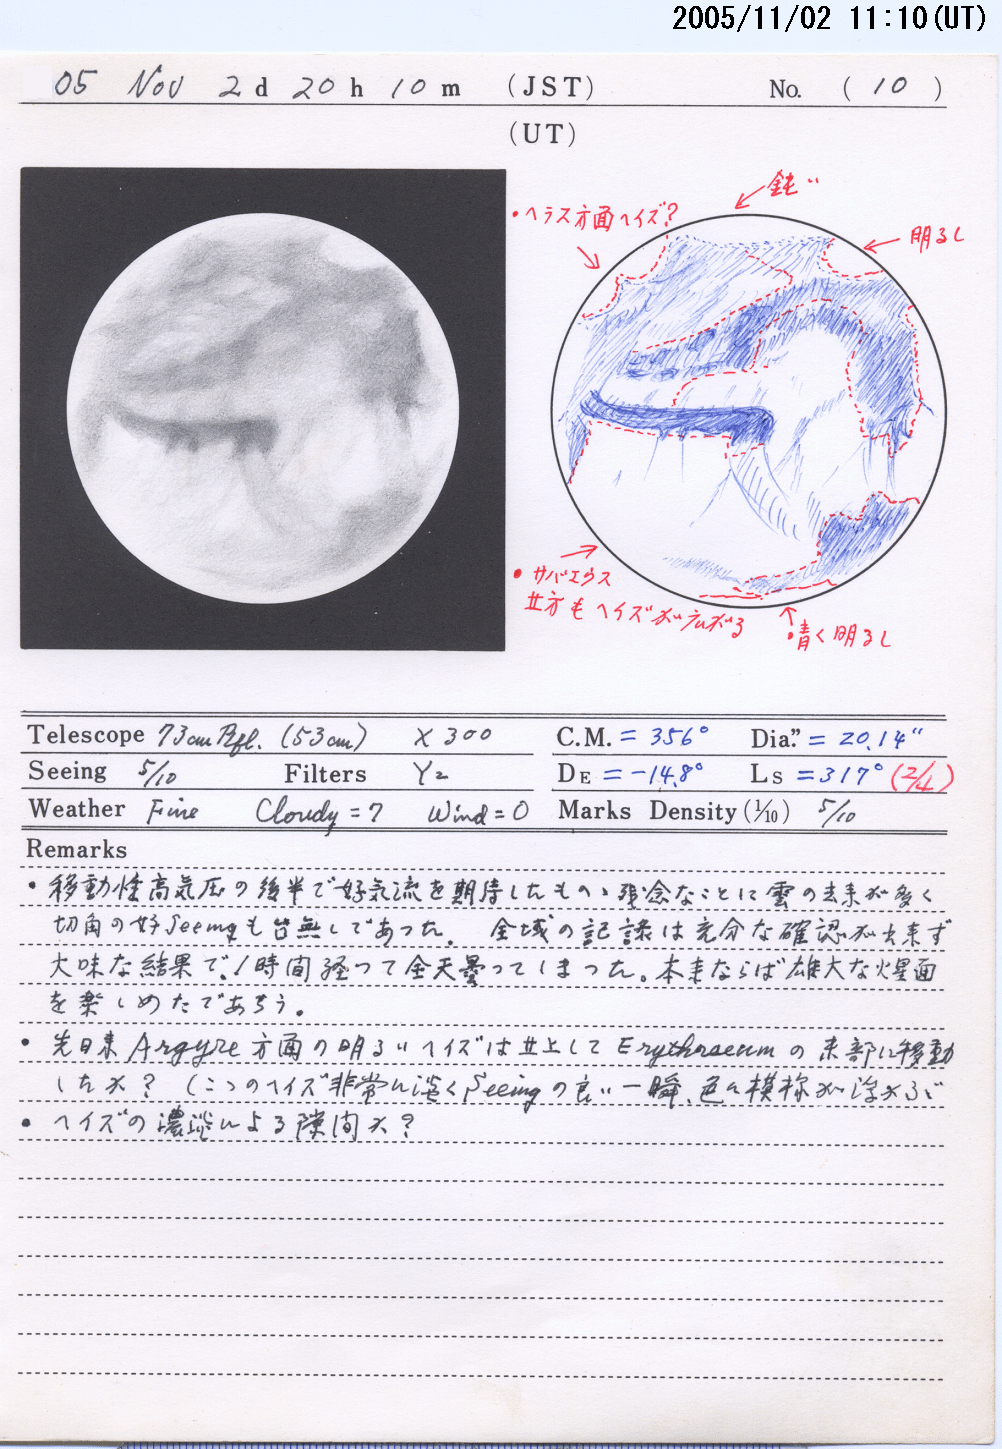 2005/11/02 11:10(UT)
05 Nov 2 d 20 h 10 m (JST) No. (10)
(UT)
鈍い
・ヘラス方面ヘイズ?
明るし
・サバエウス
北方もヘイズが広がる
青く明るし
Telescope 73cm Rfl. (53cm) X 300 C.M. = 356° Dia." = 20.14"
Seeing 5/10 Filters Y2 DE = -14.8° Ls = 317° (2/4)
Weather Fine Cloudy = 7 Wind = 0 Marks Density (1/10) 5/10
Remarks
・移動性高気圧の後半で好気流を期待したものの、残念なことに雲の去来が多く
切角の好Seeingも皆無しであった。 全域の記録は充分な確認が出来ず
大味な結果で、1時間経って全天曇ってしまった。本来ならば雄大な火星面
を楽しめたであろう。
・先日来Argyre方面の明るいヘイズは北上してErythraeumの東部に移動
したか? (このヘイズ非常に淡くSeeingの良い一瞬、色々模様が浮かぶ
・ヘイズの濃淡による隙間か?